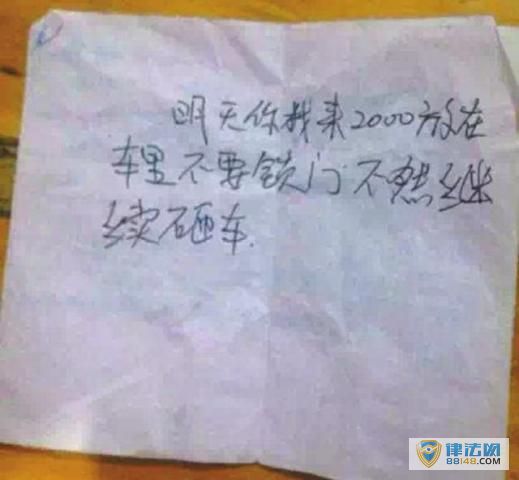 明天你找来2000放在
车里不要锁门不然继
续砸车.
律法网
88148.COM